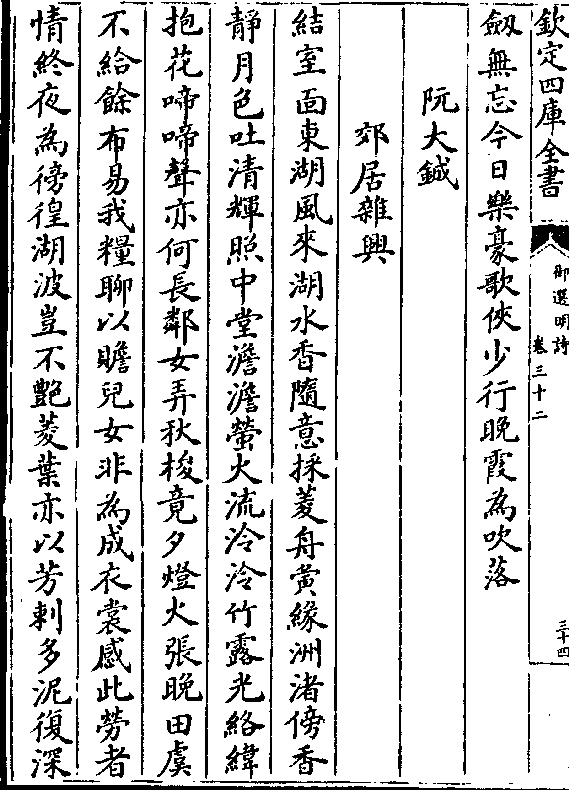 欽定四庫全書
御選明詩
卷三十二
三十四
劔無忘今日樂豪歌俠少行晚霞為吹落
阮大鋮
郊居雜興
結室面東湖風來湖水香隨意採菱舟夤緣洲渚傍香
靜月色吐清輝照中堂澹澹螢火流泠泠竹露光絡緯
抱花啼啼聲亦何長鄰女弄秋梭竟夕燈火張晚田虞
不給餘布易我糧聊以贍兒女非為成衣裳感此勞者
情終夜為徬徨湖波豈不艷菱葉亦以芳刺多泥復深